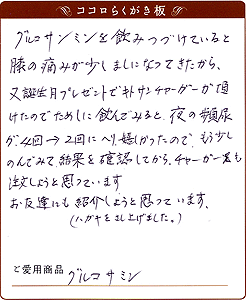 ココロらくがき板
グルコサンミンを飲みつづけていると
膝の痛みが少しましになってきたから、
又誕生月プレゼントでキトサンチャーガーが頂
けたのでためしに飲んでみると、夜の頻尿
が、4回→2回にへり、嬉しかったので、もう少し
のんでみて結果を確認してから、チャーガー茸も
注文しようと思っています
お友達にも紹介しようと思っています。
(ハガキをさし上げました。)
ご愛用商品
グルコサミン